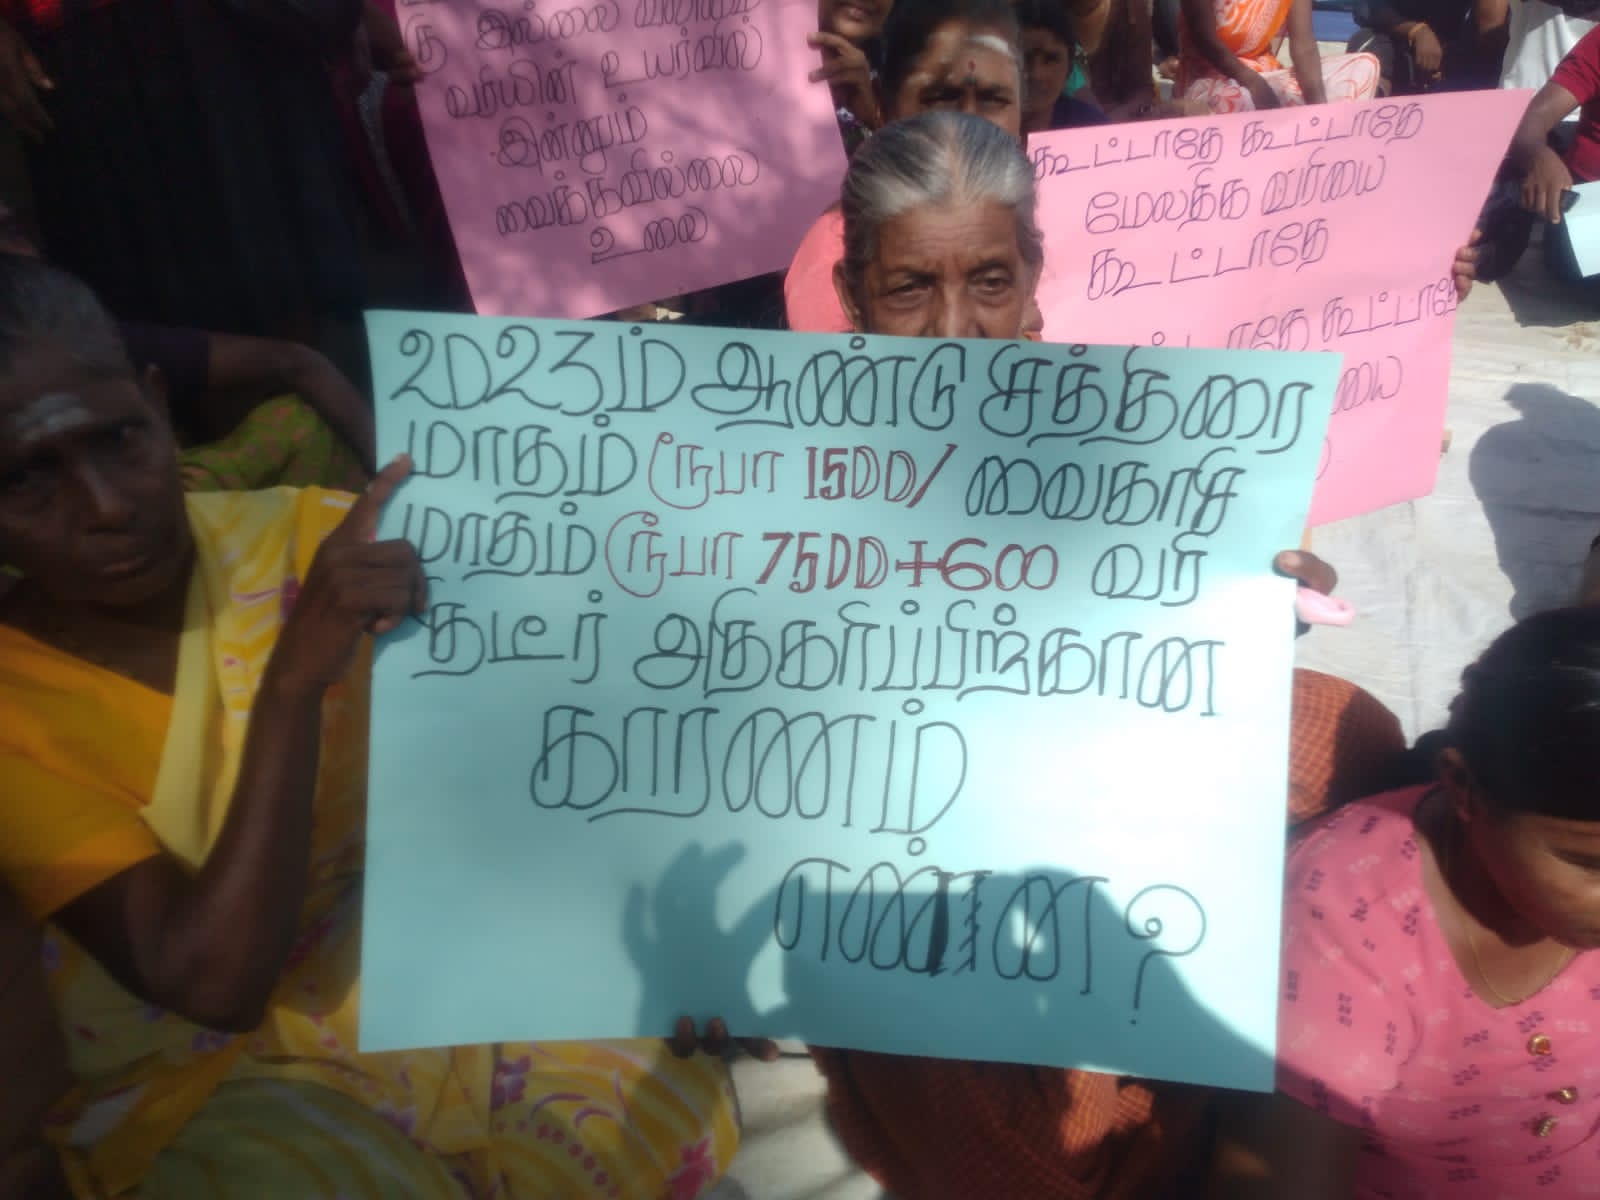 இல்லை
வரியின் உயர்வில்
இன்னும்
வைக்கவில்லை
உலை
கூட்டாதே கூட்டாதே
மேலதிக வரியை
கூட்டாதே
கூட்டாதே
2023ம் ஆண்டு சித்திரை
மாதம் ரூபா 1500/ வைகாசி
மாதம் ரூபா 7500+600 வரி
திடீர் அதிகரிப்பிற்கான
காரணம்
என்ன?